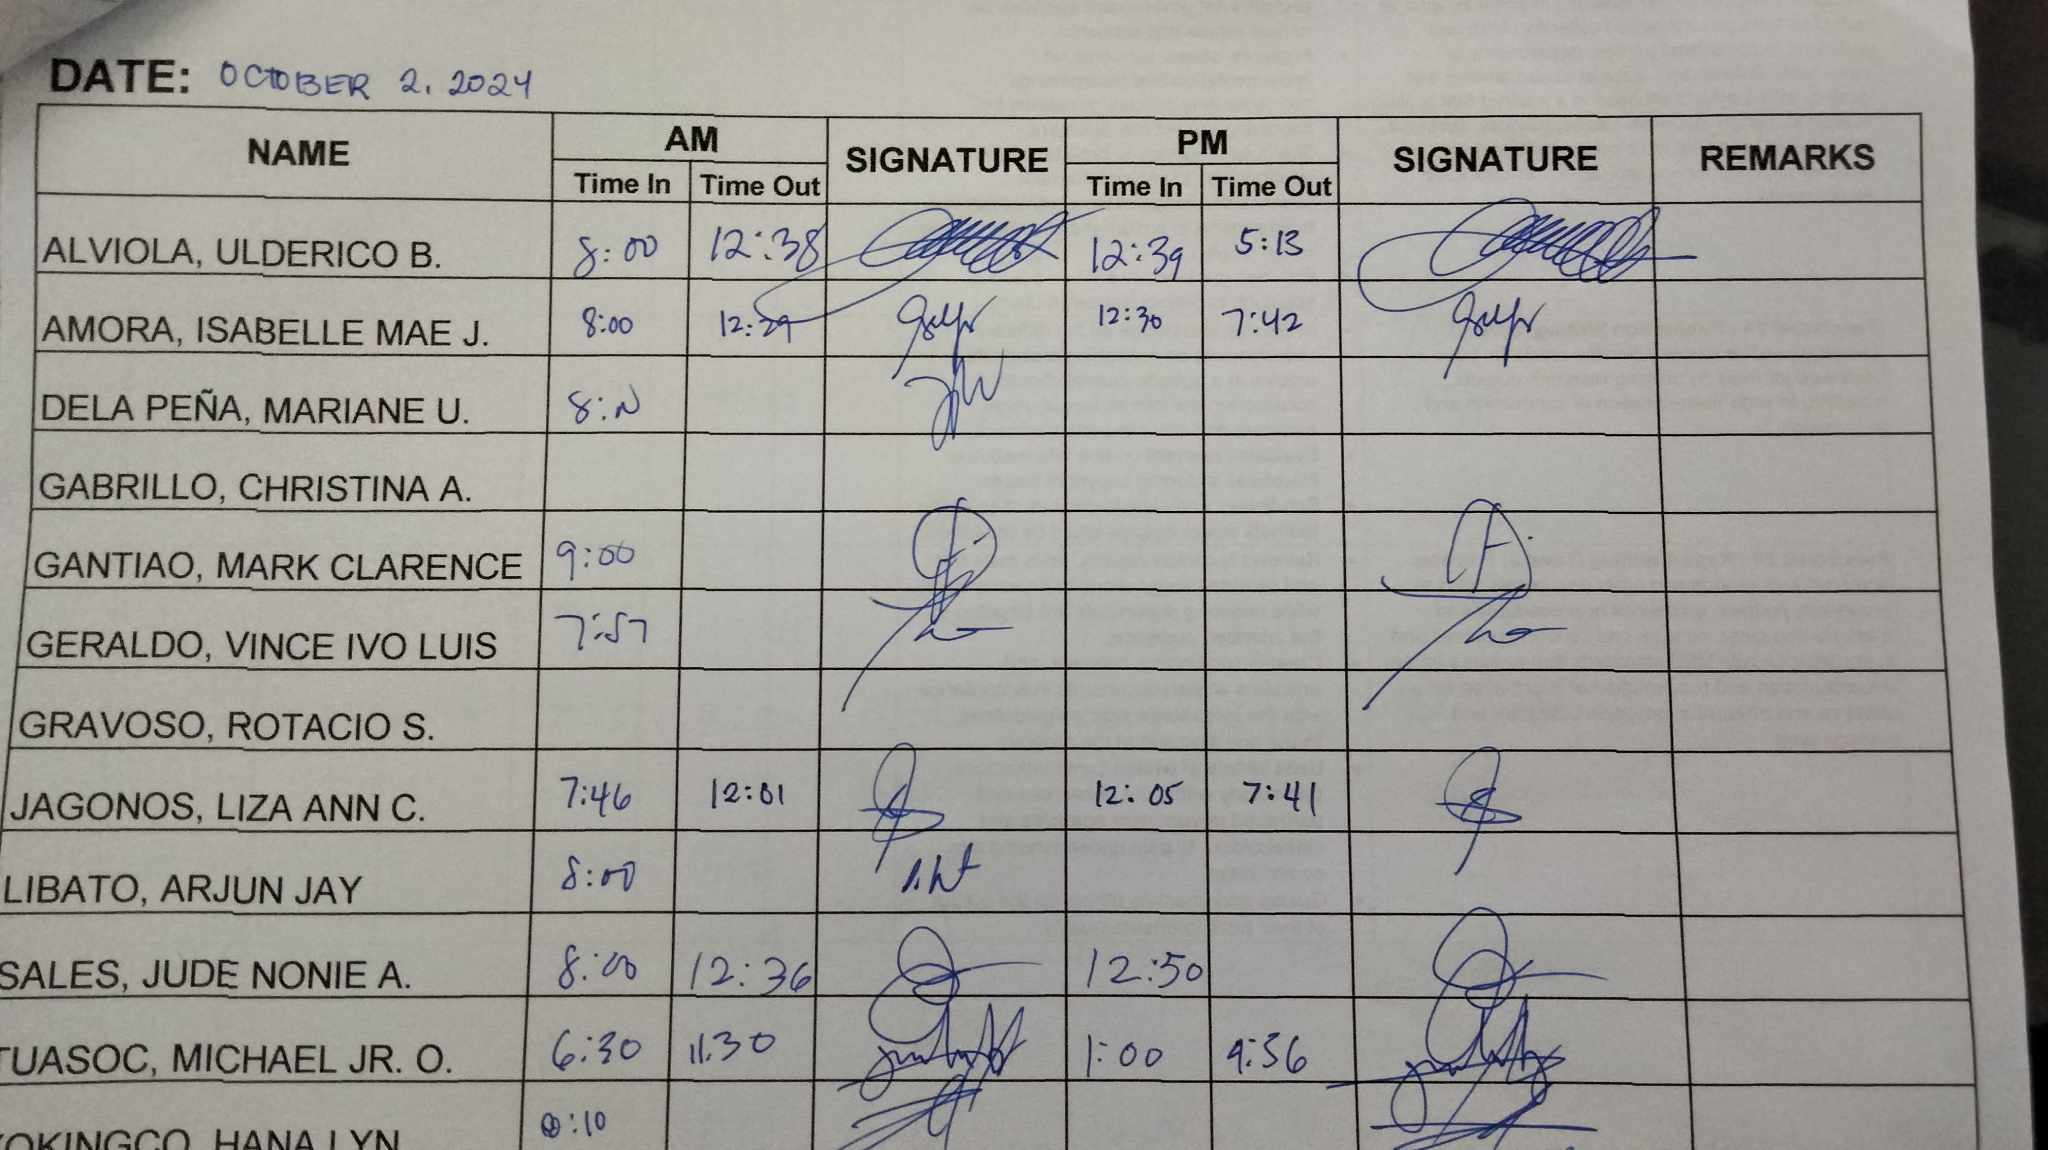 DATE: OCTOBER 2, 2024
NAME AM SIGNATURE PM SIGNATURE REMARKS
Time In Time Out Time In Time Out
ALVIOLA, ULDERICO B. 8:00 12:38 12:39 5:13
AMORA, ISABELLE MAE J. 8:00 12:29 12:30 7:42
DELA PEÑA, MARIANE U.
GABRILLO, CHRISTINA A.
GANTIAO, MARK CLARENCE 9:00
GERALDO, VINCE IVO LUIS 7:57
GRAVOSO, ROTACIO S.
JAGONOS, LIZA ANN C. 7:46 12:01 12:05 7:41
LIBATO, ARJUN JAY 8:00
SALES, JUDE NONIE A. 8:00 12:36 12:50
TUASOC, MICHAEL JR. O. 6:30 11:30 1:00
HANA LYN